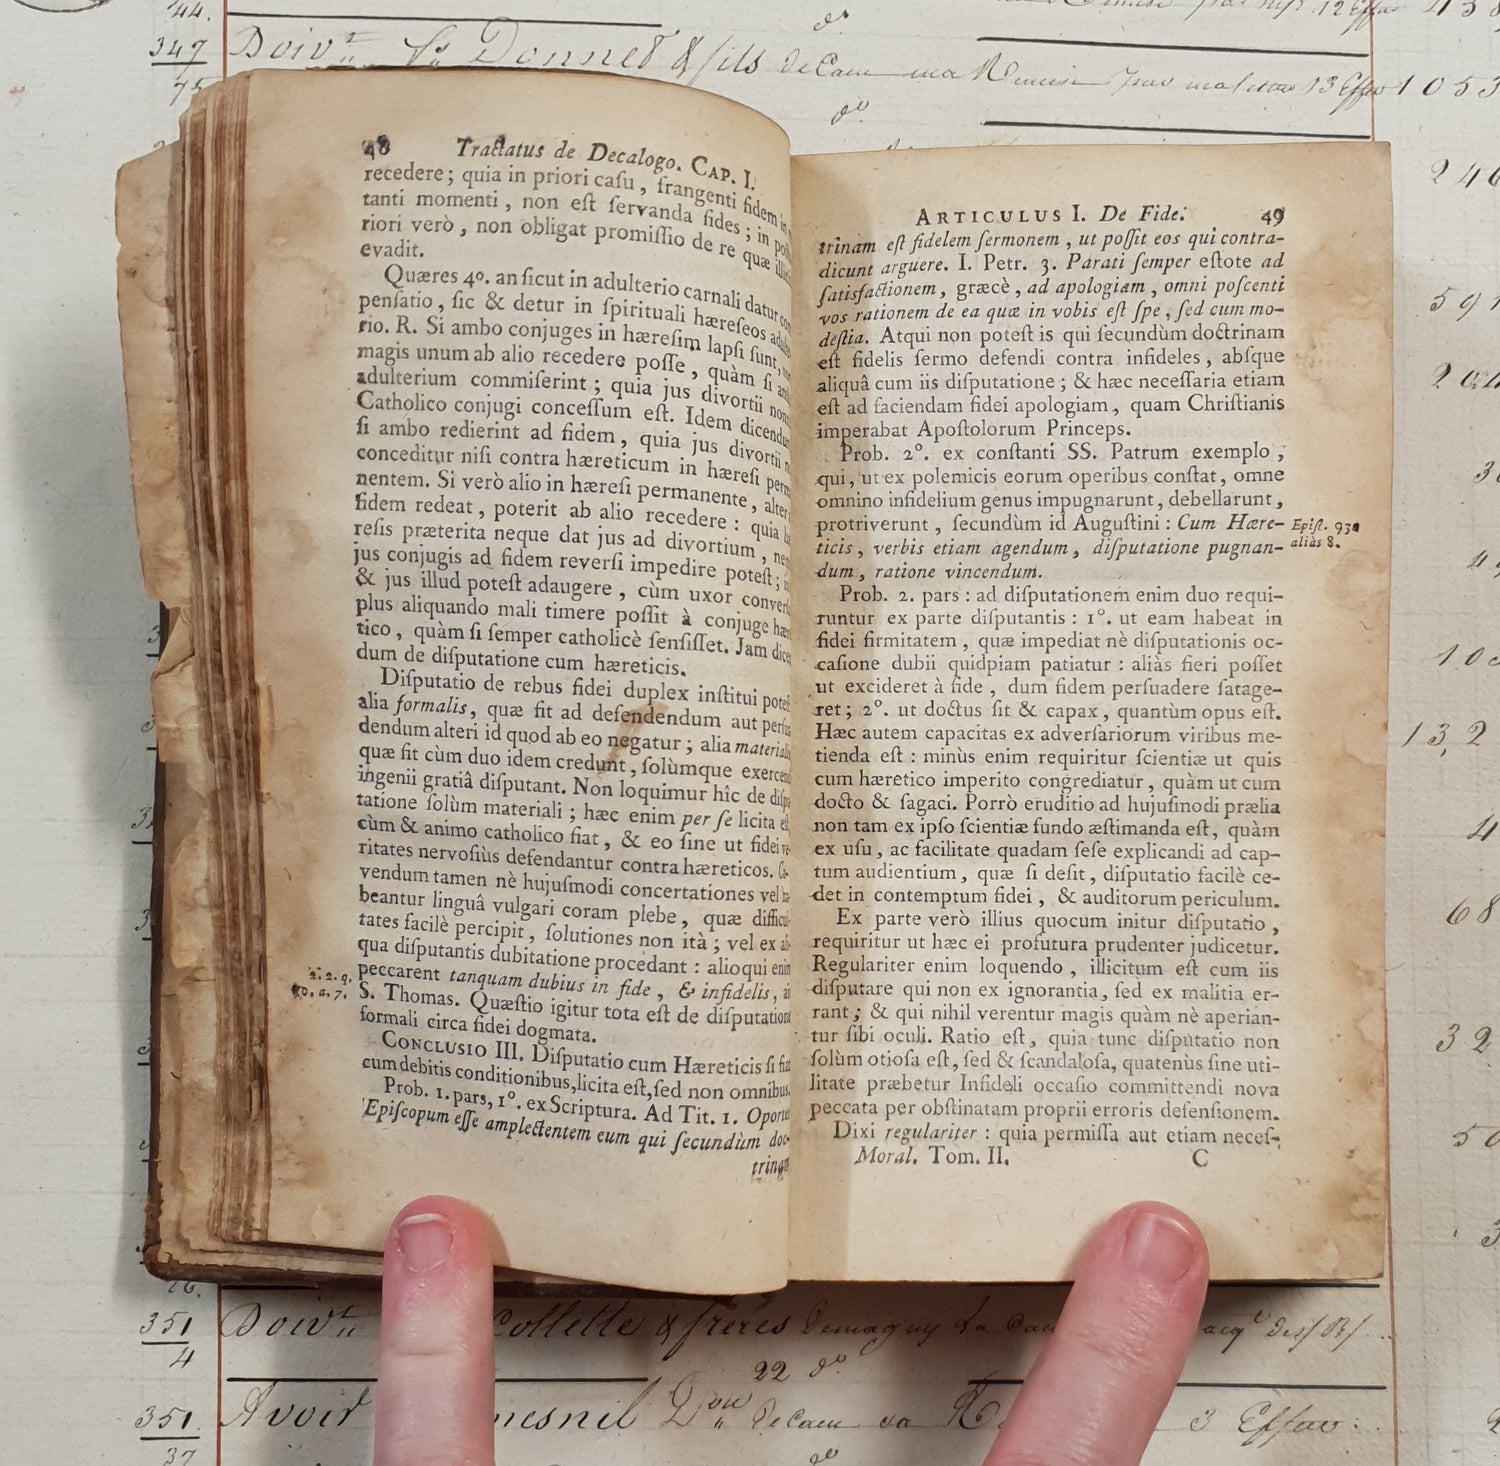 44.
347 Doivt Donnet & fils de Caen ma Remise par ma lettre 13 Effets 1053
48 Tractatus de Decalogo. CAP. I.
recedere; quia in priori caſu, frangenti fidem in
tanti momenti, non eſt ſervanda fides; in poſ
riori verò, non obligat promiſſio de re quæ illi
evadit.
Quæres 4o. an ſicut in adulterio carnali datur
penſatio, ſic & detur in ſpirituali hæreſeos
rio. R. Si ambo conjuges in hæreſim lapſi ſunt,
magis unum ab alio recedere poſſe, quàm ſi
adulterium commiſerint; quia jus divortii non
Catholico conjugi conceſſum eſt. Idem dicendu
ſi ambo redierint ad fidem, quia jus divortii
conceditur niſi contra hæreticum in hæreſi
nentem. Si verò alio in hæreſi permanente, alter
fidem redeat, poterit ab alio recedere: quia
reſis præterita neque dat jus ad divortium,
jus conjugis ad fidem reverſi impedire poteſt;
& jus illud poteſt adaugere, cùm uxor converſ
plus aliquando mali timere poſſit à conjuge hæ
tico, quàm ſi ſemper catholicè ſenſiſſet. Jam dice
dum de diſputatione cum hæreticis.
Diſputatio de rebus fidei duplex inſtitui poteſ
alia formalis, quæ fit ad defendendum aut perſu
dendum alteri id quod ab eo negatur; alia materialis
quæ fit cùm duo idem credunt, ſolùmque exercen
ingenii gratiâ diſputant. Non loquimur hîc de diſp
tatione ſolùm materiali; hæc enim per ſe licita eſt
cùm & animo catholico fiat, & eo ſine ut fidei ve
ritates nervoſiùs defendantur contra hæreticos. Ca
vendum tamen nè hujuſmodi concertationes vel ha
beantur linguâ vulgari coram plebe, quæ difficul
tates facilè percipit, ſolutiones non ità; vel ex ali
qua diſputantis dubitatione procedant: alioqui enim
2. 2. q. peccarent tanquam dubius in fide, & infidelis, ait
10. a. 7. S. Thomas. Quæſtio igitur tota eſt de diſputatione
formali circa fidei dogmata.
CONCLUSIO III. Diſputatio cum Hæreticis ſi fiat
cum debitis conditionibus, licita eſt, ſed non omnibus.
Prob. 1. pars, 1o. ex Scriptura. Ad Tit. 1. Oportet
Epiſcopum eſſe amplectentem eum qui ſecundùm doc-
trinam
ARTICULUS I. De Fide. 49
trinam eſt fidelem ſermonem, ut poſſit eos qui contra-
dicunt arguere. I. Petr. 3. Parati ſemper eſtote ad
ſatisfactionem, græcè, ad apologiam, omni poſcenti
vos rationem de ea quæ in vobis eſt ſpe, ſed cum mo-
deſtia. Atqui non poteſt is qui ſecundùm doctrinam
eſt fidelis ſermo defendi contra infideles, abſque
aliquâ cum iis diſputatione; & hæc neceſſaria etiam
eſt ad faciendam fidei apologiam, quam Chriſtianis
imperabat Apoſtolorum Princeps.
Prob. 2o. ex conſtanti SS. Patrum exemplo,
qui, ut ex polemicis eorum operibus conſtat, omne
omnino infidelium genus impugnarunt, debellarunt,
protriverunt, ſecundùm id Auguſtini: Cum Hære- Epiſt. 93a
ticis, verbis etiam agendum, diſputatione pugnan- aliàs 8.
dum, ratione vincendum.
Prob. 2. pars: ad diſputationem enim duo requi-
runtur ex parte diſputantis: 1o. ut eam habeat in
fidei firmitatem, quæ impediat nè diſputationis oc-
caſione dubii quidpiam patiatur: aliàs fieri poſſet
ut excideret à fide, dum fidem perſuadere ſatage-
ret; 2o. ut doctus ſit & capax, quantùm opus eſt.
Hæc autem capacitas ex adverſariorum viribus me-
tienda eſt: minùs enim requiritur ſcientiæ ut quis
cum hæretico imperito congrediatur, quàm ut cum
docto & ſagaci. Porrò eruditio ad hujuſmodi prælia
non tam ex ipſo ſcientiæ fundo æſtimanda eſt, quàm
ex uſu, ac facilitate quadam ſeſe explicandi ad cap-
tum audientium, quæ ſi deſit, diſputatio facilè ce-
det in contemptum fidei, & auditorum periculum.
Ex parte verò illius quocum initur diſputatio,
requiritur ut hæc ei profutura prudenter judicetur.
Regulariter enim loquendo, illicitum eſt cum iis
diſputare qui non ex ignorantia, ſed ex malitia er-
rant; & qui nihil verentur magis quàm nè aperian-
tur ſibi oculi. Ratio eſt, quia tunc diſputatio non
ſolùm otioſa eſt, ſed & ſcandaloſa, quatenùs ſine uti-
litate præbetur Infideli occaſio committendi nova
peccata per obſtinatam proprii erroris defenſionem.
Dixi regulariter: quia permiſſa aut etiam neceſ-
Moral. Tom. II. C
351 Doivt Collette & freres
4
22 do
351. Avoir mesnil de Caen sa 3 Effets
37